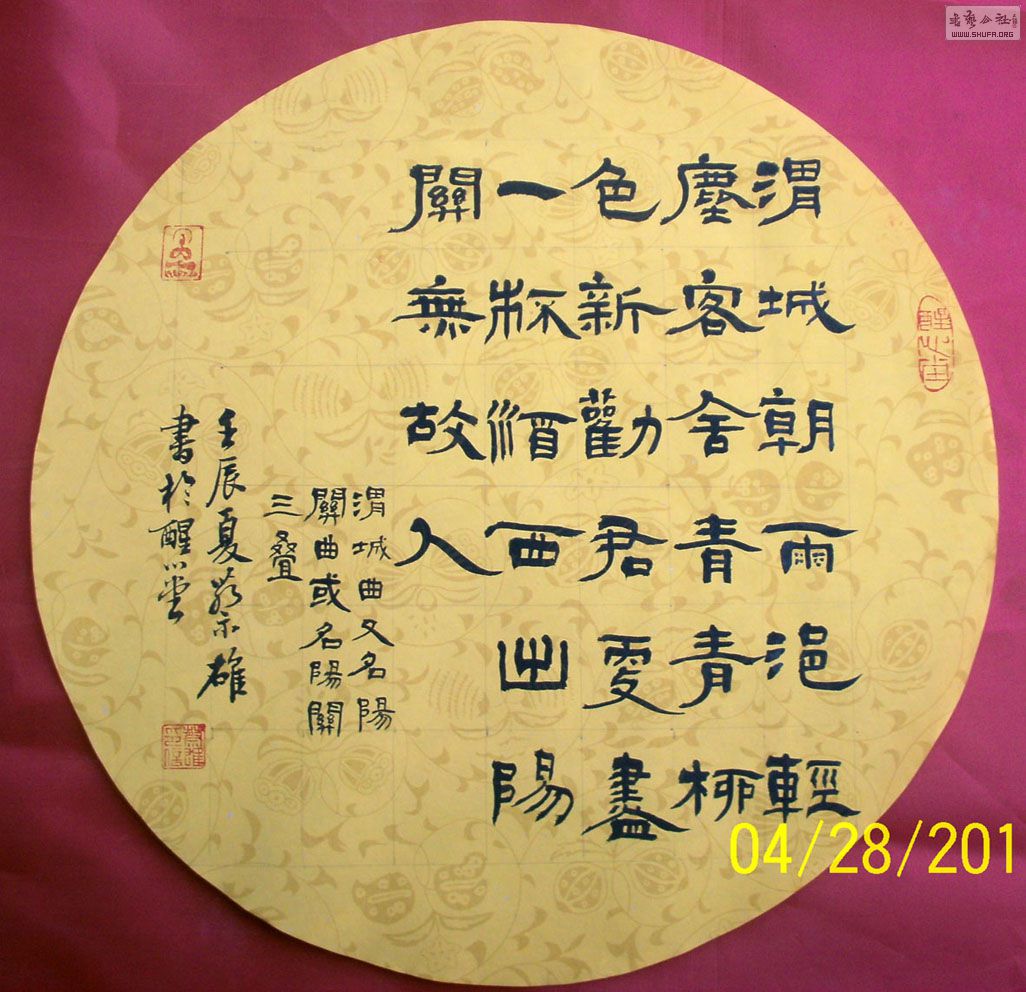 渭城朝雨浥輕
塵客舍青青柳
色新勸君更盡
一杯酒西出陽
關無故人
渭城曲又名陽
關曲或名陽關
三叠
壬辰夏蔡雄
書於醒心堂
醒心堂
書藝公社
WWW.SHUFA.ORG
04/28/201